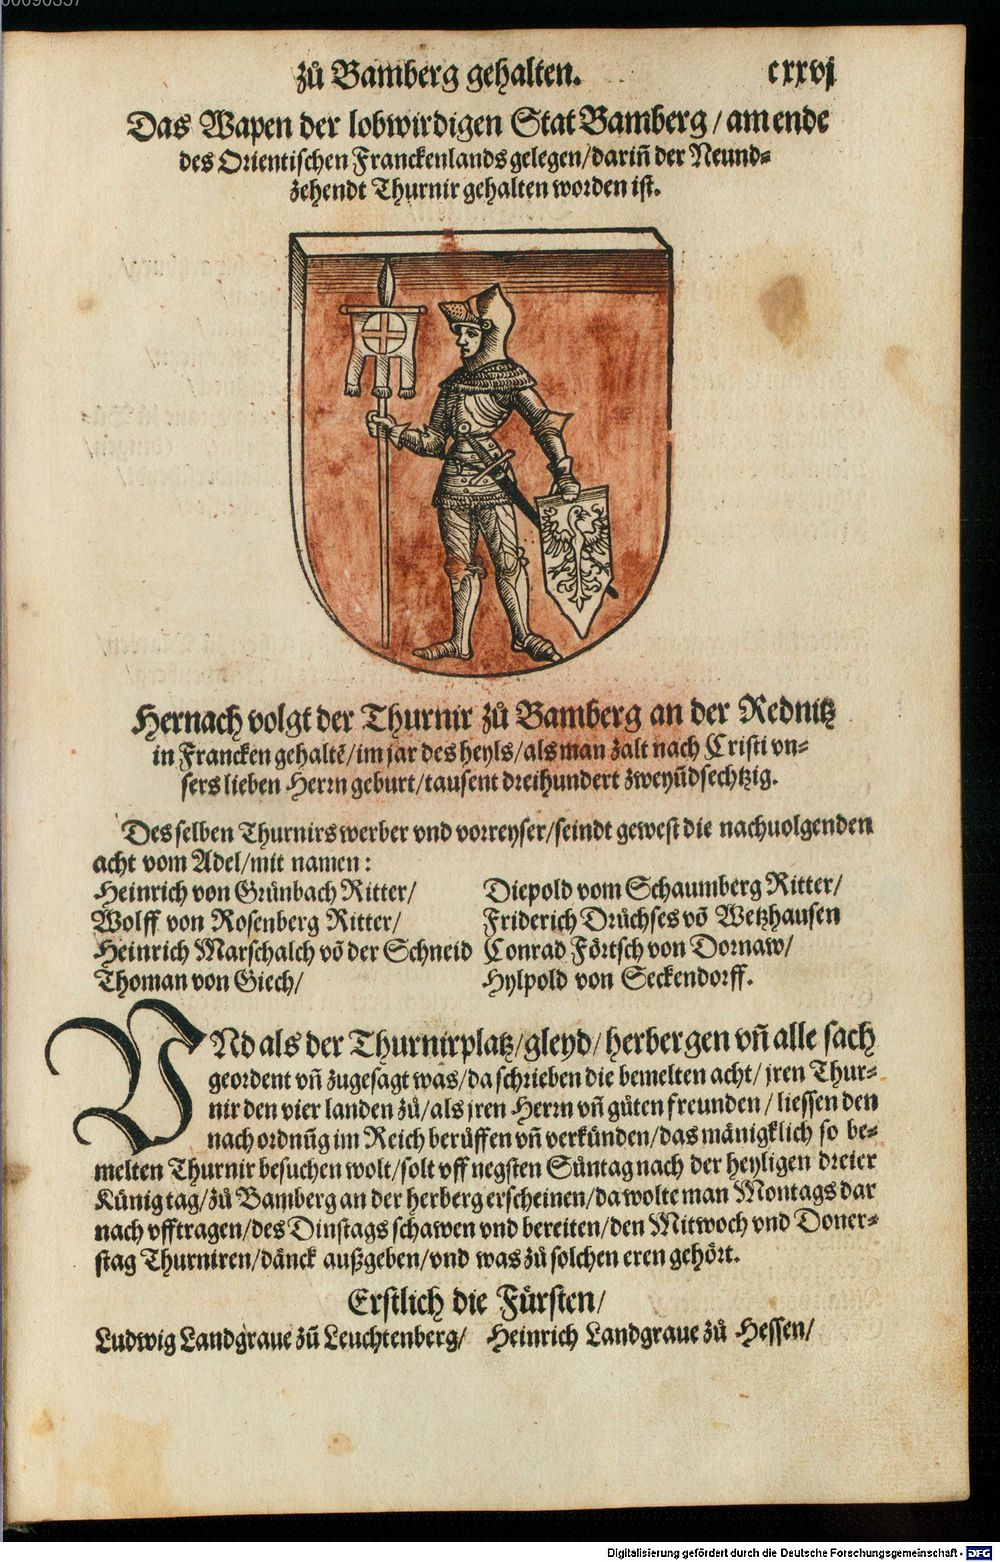 00090357
zů Bamberg gehalten.
cxxvj
Das Wapen der lobwirdigen Stat Bamberg / am ende
des Orientischen Franckenlands gelegen / dariñ der Neund-
zehendt Thurnir gehalten worden ist.
Hernach volgt der Thurnir zů Bamberg an der Rednitz
in Francken gehaltē / im jar des heyls / als man zalt nach Cristi vn-
sers lieben Herrn geburt / tausent dreihundert zweyũdsechtzig.
Des selben Thurnirs werber vnd vorreyser / seindt gewest die nachuolgenden
acht vom Adel / mit namen :
Heinrich von Grünbach Ritter /
Wolff von Rosenberg Ritter /
Heinrich Marschalch võ der Schneid
Thoman von Giech /
Diepold vom Schaumberg Ritter /
Friderich Drüchses võ Wetzhausen
Conrad Förtsch von Dornaw /
Hylpold von Seckendorff.
VNd als der Thurnirplatz / gleyd / herbergen vñ alle sach
geordent vñ zugesagt was / da schrieben die bemelten acht / jren Thur-
nir den vier landen zů / als jren Herrn vñ gůten freunden / liessen den
nach ordnũg im Reich berůffen vñ verkünden / das mänigklich so be-
melten Thurnir besuchen wolt / solt vff negsten Sũntag nach der heyligen dreier
Künig tag / zů Bamberg an der herberg erscheinen / da wolte man Montags dar
nach vfftragen / des Dinstags schawen vnd bereiten / den Mitwoch vnd Doner-
stag Thurniren / dänck außgeben / vnd was zů solchen eren gehört.
Erstlich die Fürsten /
Ludwig Landgraue zů Leuchtenberg /
Heinrich Landgraue zů Hessen /
Digitalisierung gefördert durch die Deutsche Forschungsgemeinschaft - DFG